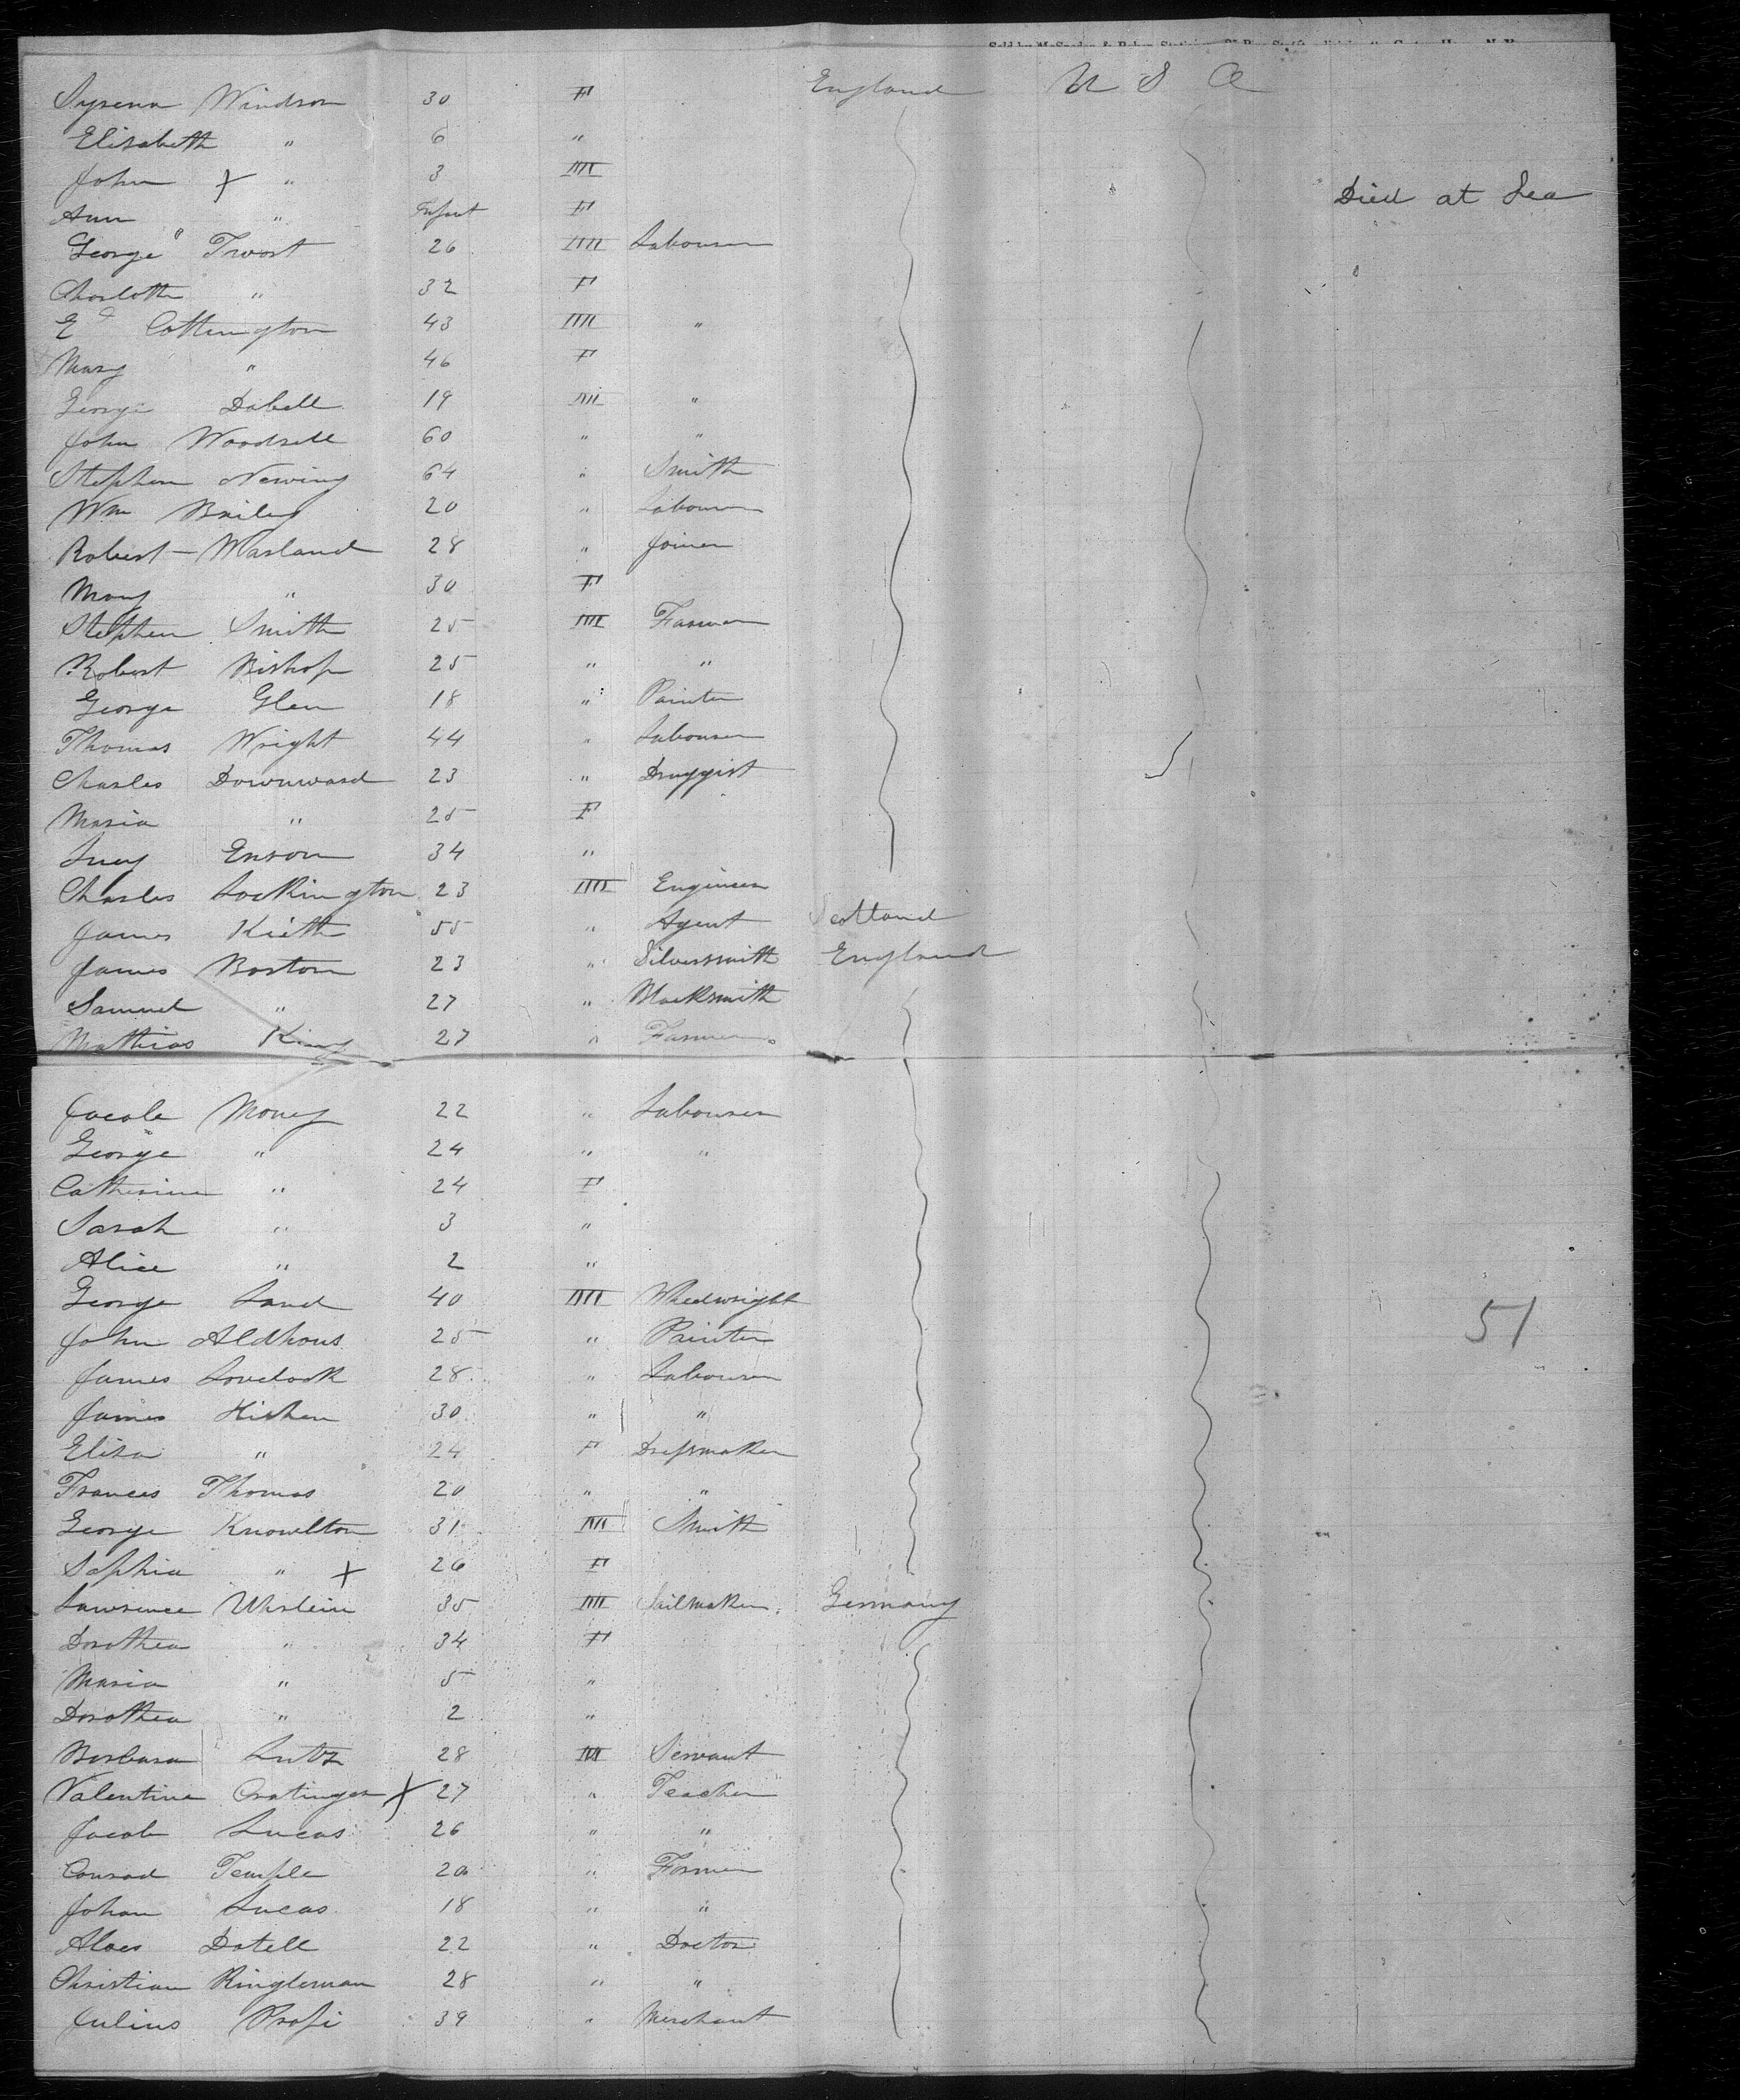 Syrena Windson 30 F England U S A
Elisabeth " 6 "
John X " 3 M
Ann " Infant F Died at Sea
George Twost 26 M Labourer
Charlotte " 32 F
Ed Cottington 43 M "
Mary " 46 F
George Dabell 19 M "
John Woodsell 60 " "
Stephen Newing 64 " Smith
Wm Bailey 20 " Labourer
Robert Masland 28 " Joiner
Mary " 30 F
Stephen Smith 25 M Farmer
Robert Bishop 25 " "
George Glen 18 " Painter
Thomas Wright 44 " Labourer
Charles Downward 23 " Druggist
Maria " 25 F
Lucy Enson 34 "
Charles Lockington 23 M Engineer
James Kieth 55 " Agent Scotland
James Boston 23 " Silversmith England
Samuel " 27 " Blacksmith
Mathias King 27 " Farmer
Jacob Money 22 " Labourer
George " 24 " "
Catherine " 24 F
Sarah " 3 "
Alice " 2 "
George Land 40 M Wheelwright 51
John Aldhous 25 " Painter
James Lovelock 28 " Labourer
James Hishen 30 " "
Elisa " 24 F Dressmaker
Frances Thomas 20 " "
George Knowlton 31 M Smith
Sophia " X 26 F
Lawrence Uhslein 35 M Sailmaker Germany
Dorothea " 34 F
Maria " 5 "
Dorothea " 2 "
Barbara Lutz 28 M Servant
Valentine X 27 " Teacher
Jacob Lucas 26 " "
Conrad Temple 20 " Farmer
Johan Lucas 18 " "
Aloes Datell 22 " Doctor
Christian Ringleman 28 " "
Julius Profi 39 " Merchant